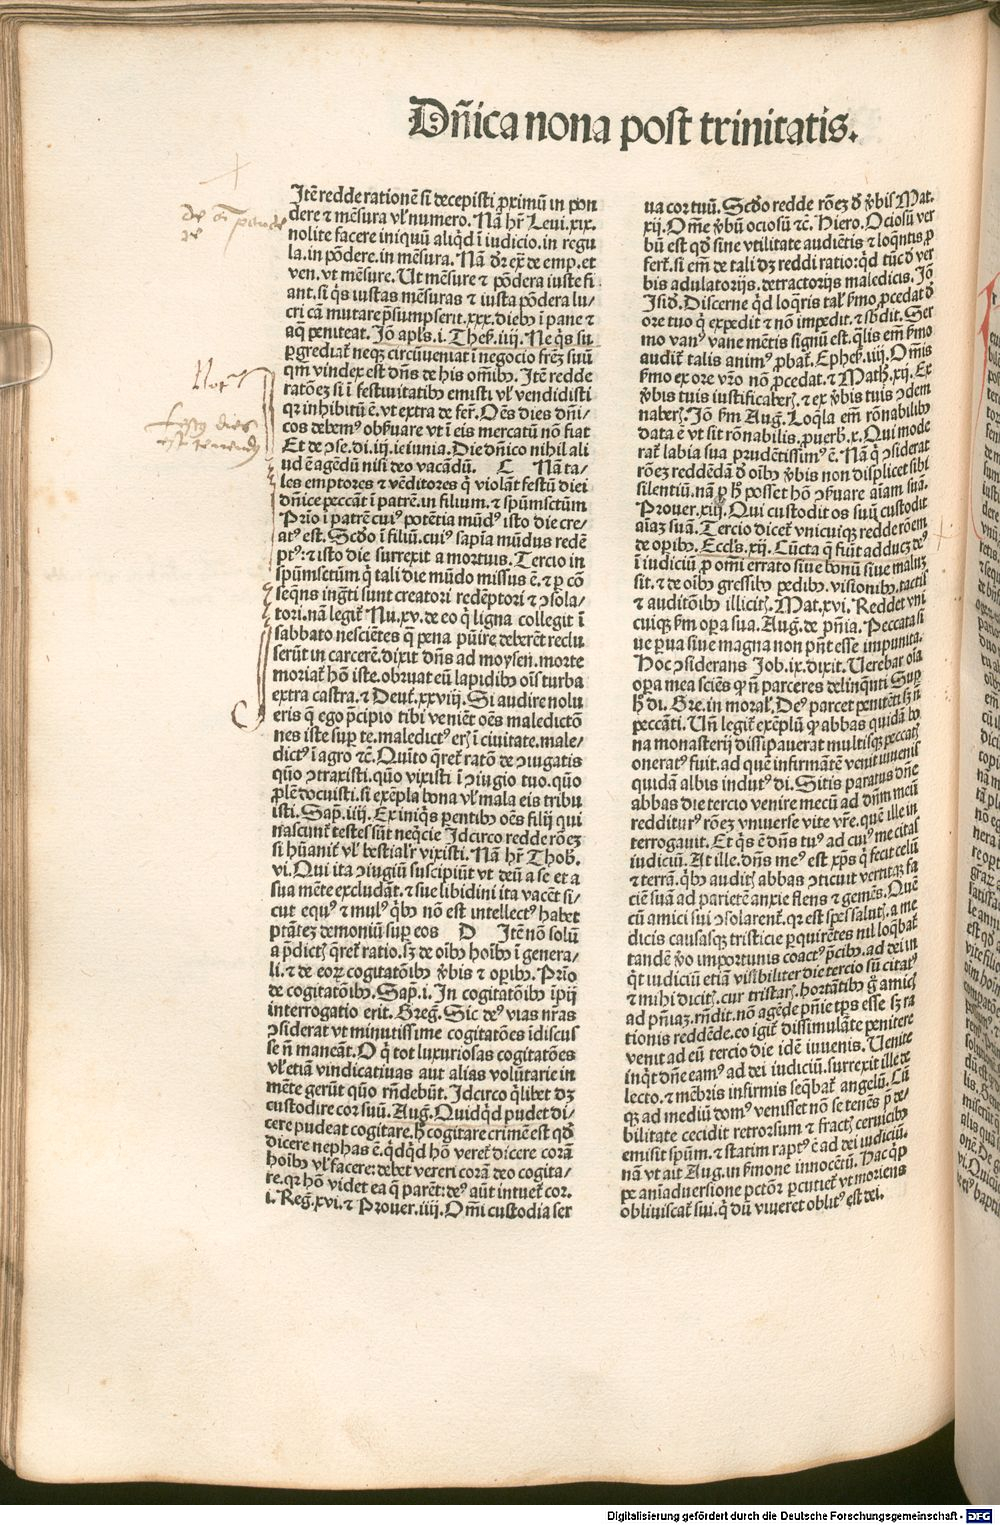 Dñica nona post trinitatis.
Jtē redde rationē si decepisti ꝓximū in pon
dere ⁊ mēsura vl̓ numero. Nā hr̄ Leui.xix.
nolite facere iniquū aliq̇d ī iudicio.in regu
la.in pōdere.in mēsura. Nā dr̄ ex̄ de emp.et
ven.vt mēsure. Ut mēsure ⁊ pōdera iuste fi
ant.si q̇s iustas mēsuras ⁊ iusta pōdera lu/
cri cā mutare p̄sumpserit.xxx.diebꝰ ī pane ⁊
aq̄ peniteat. Jō apl̓s.i. Thes̄.iiij. Ne q̇s su
ꝑgrediat̄ neqꝫ circūueniat ī negocio frēꝫ suū
qm̄ vindex est dn̄s de his om̄ibꝰ. Jtē redde
ratōeꝫ si ī festiuitatibꝰ emisti vl̓ vendidisti
qꝛ inhibitū ē.vt extra de fer̄. Oēs dies dn̄i/
cos debemꝰ obẜuare vt ī eis mercatū nō fiat
Et de ↄse.di.iij.ieiunia. Die dn̄ico nihil ali
ud ē agēdū nisi deo vacādū. C Nā ta/
les emptores ⁊ vēditores q̇ violāt festū diei
dn̄ice peccāt ī patrē.in filium.⁊ spūmsctūm
Prīo ī patrē cuiꝰ potētia mūdꝰ isto die cre/
atꝰ est. Scd̓o ī filiū.cuiꝰ sapia mūdus redē
ptꝰ:⁊ isto die surrexit a mortuis. Tercio in
spūmsctūm q̇ tali die mūdo missus ē.⁊ ꝑ cō
seq̄ns īgr̄ti sunt creatori redēptori ⁊ ↄsola/
tori.nā legit̄ Nu.xv.de eo q̇ ligna collegit ī
sabbato nesciētes q̄ pena pūire deberēt reclu
serūt in carcerē.dixit dn̄s ad moysen.morte
moriat̄ hō iste.obruat eū lapidibꝰ oīs turba
extra castra.⁊ Deut̄.xxviij. Si audire nolu
eris q̄ ego p̄cipio tibi veniēt oēs maledictō
nes iste suꝑ te.maledictꝰ erꝭ ī ciuitate.male/
dictꝰ ī agro ⁊c̄. Quīto q̄ret̄ ratō de ↄiugatis
quō ↄtraxisti.quō vixisti ī ↄiugio tuo.quō
ꝓlē docuisti.si exēpla bona vl̓ mala eis tribu
isti. Sap̄.iiij. Ex iniq̇s ꝑentibꝰ oēs filij qui
nascunt̄ testes sūt neq̇cie Jdcirco redde rōeꝫ
si hūanit̄ vl̓ bestial̓r vixisti. Nā hr̄ Thob̄.
vi. Qui ita ↄiugiū suscipiūt vt deū a se et a
sua mēte excludāt.⁊ sue libidini ita vacēt si/
cut equꝰ ⁊ mulꝰ q̇bꝰ nō est intellectꝰ habet
ptāteꝫ demoniū suꝑ eos D Jtē nō solū
a p̄dictꝭ q̄ret̄ ratio.sꝫ de oībꝰ hoībꝰ ī genera/
li.⁊ de eoꝝ cogitatōibꝰ v̓bis ⁊ oꝑibꝰ. Prīo
de cogitatōibꝰ. Sap̄.i. In cogitatōibꝰ īpij
interrogatio erit. Greḡ. Sic deꝰ vias nr̄as
ↄsiderat vt minutissime cogitatōes īdiscus
se ñ maneāt. O q̇ tot luxuriosas cogitatōes
vl̓ etiā vindicatiuas aut alias volūtarie in
mēte gerūt quō rn̄debūt. Jdcirco q̇libet dꝫ
custodire cor suū. Auḡ. Quidq̇d pudet di/
cere pudeat cogitare.h̓ cogitare crimē est qd̓
dicere nephas ē.q̇dq̇d hō veret̄ dicere corā
hoībꝰ vl̓ facere:debet vereri corā deo cogita/
re.qꝛ hō videt ea q̄ parēt:deꝰ aūt intuet̄ cor.
i. Reḡ.xvi.⁊ Prouer.iiij. Om̄i custodia ser
ua cor tuū. Scd̓o redde rōeꝫ d̓ v̓bis Mat.
xij. Om̄e v̓bū ociosū ⁊c̄. Hiero. Ociosū ver
bū est qd̓ sine vtilitate audiētis ⁊ loq̄ntis ꝓ
fert̄.si em̄ de tali dꝫ reddi ratio:q̇d tūc d̓ ver
bis adulatorijs.detractorijs maledicis. Jō
Jsid̓. Discerne q̇d loq̄ris tal̓ ẜmo ꝓcedat d̓
ore tuo q̇ expedit ⁊ nō impedit.⁊ sb̓dit. Ser
mo vanꝰ vane mētis signū est.q̄lis em̄ ẜmo
audit̄ talis animꝰ ꝓbat̄. Ephes̄.iiij. Om̄is
ẜmo ex ore vr̄o nō ꝓcedat.⁊ Math̄.xij. Ex
v̓bis tuis iustificaberꝭ.⁊ ex v̓bis tuis ↄdem
naberꝭ. Jō ẜm Auḡ. Loq̄la em̄ rōnabilibꝰ
data ē vt sit rōnabilis.ꝓuerb̄.x. Qui mode
rat̄ labia sua prudētissimꝰ ē. Nā q̇ ↄsiderat
rōeꝫ reddēdā d̓ oībꝰ v̓bis non displicet sibi
silentiū.nā ꝓ h̓ posset hō ↄẜuare aīam suā.
Prouer.xiij. Qui custodit os suū custodit
aīaꝫ suā. Tercio dicet̄ vnicuiqꝫ redde rōem
de oꝑibꝰ. Eccl̓s.xij. Cūcta q̄ fiūt adducꝫ deꝰ
ī iudiciū ꝓ om̄i errato siue bonū siue malū
sit.⁊ de oībꝰ gressibꝰ pedibꝰ.visionibꝰ.tactis
⁊ auditōibꝰ illicitꝭ. Mat.xvi. Reddet vni
cuiqꝫ ẜm oꝑa sua. Auḡ. de pn̄ia. Peccata si
ue ꝑua siue magna non pn̄t esse impunita.
Hoc ↄsiderans Job.ix.dixit. Uerebar oīa
oꝑa mea sciēs ꝙ ñ parceres delinq̄nti Suꝑ
h̓ di. Gre.in moral̓. Deꝰ parcet penitēti sꝫ ñ
peccāti. Un̄ legit̄ exēplū ꝙ abbas quidā bo
na monasterij dissipauerat multisqꝫ peccatꝭ
oneratꝰ fuit.ad quē infirmātē venit iuuenis
quidā albis indutꝰ di. Sitis paratus dn̄e
abbas die tercio venire mecū ad dn̄m meū
redditurꝰ rōeꝫ vniuerse vite vr̄e.quē ille in
terrogauit. Et q̇s ē dn̄s tuꝰ ad cuiꝰ me citas
iudiciū. At ille.dn̄s meꝰ est xp̄s q̇ fecit celū
⁊ terrā.q̇bꝰ auditꝭ abbas ↄticuit vertitqꝫ fa
ciē suā ad parietē anxie flens ⁊ gemēs. Quē
cū amici sui ↄsolarent̄.qꝛ est spes salutꝭ.a me
dicis causasqꝫ tristicie ꝑquirētes nil loq̄bat̄
tandē v̓o importunis coactꝰ p̄cibꝰ.ad dei in
q̇t iudiciū etiā visibiliter die tercio sū citatꝰ
⁊ mihi dicitꝭ.cur tristarꝭ.hortātibꝰ g̓ amicꝭ
ad pn̄iaꝫ.rn̄dit.nō agēde pn̄ie tp̄s esse sꝫ ra
tionis reddēde.eo igit̄ dissimulāte penitere
venit ad eū tercio die idē iuuenis. Uenite
inq̇t dn̄e eamꝰ ad dei iudiciū.surrexit ille de
lecto.⁊ mēbris infirmis seq̄bat̄ angelū. Cū
qꝫ ad mediū domꝰ venisset nō se tenēs p̄ de/
bilitate cecidit retrorsum ⁊ fractꝭ ceruicibꝰ
emisit spūm.⁊ statim raptꝰ ē ad dei iudiciū.
nā vt ait Aug.in ẜmone innocētū. Hac q̇ꝑ
pe aniaduersione pctōr ꝑcutiet̄ vt moriens
obliuiscat̄ sui.q̇ dū viueret oblitꝰ est dei.
Digitalisierung gefördert durch die Deutsche Forschungsgemeinschaft - DFG